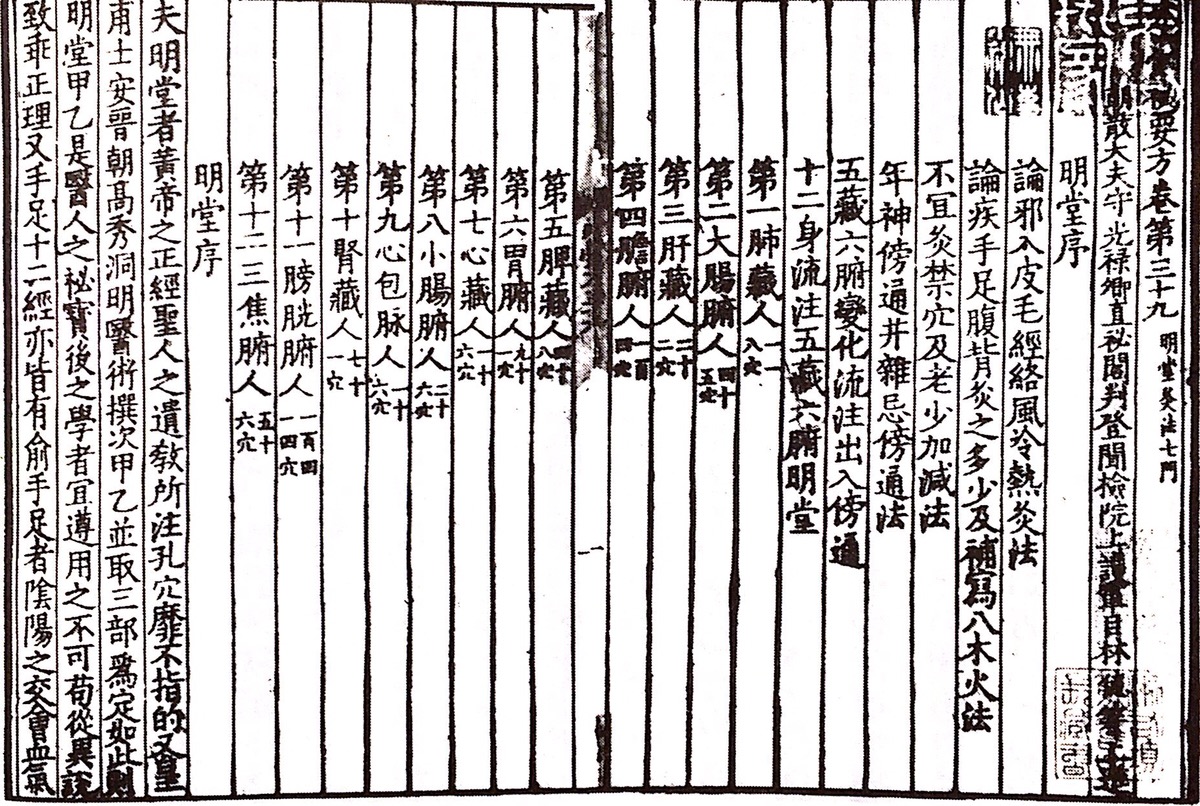 要方卷第三十九 明堂灸法七門
散大夫守光祿卿直祕閣判登聞檢院上護軍臣林億等上進
明堂序
論邪入皮毛經絡風冷熱灸法
論疾手足腹背灸之多少及補寫八木火法
不宜灸禁穴及老少加減法
年神傍通并雜忌傍通法
五藏六腑變化流注出入傍通
十二身流注五藏六腑明堂
第一肺藏人 一十八穴
第二大腸腑人 四十五穴
第三肝藏人 二十二穴
第四膽腑人 一百四穴
第五脾藏人 四十八穴
第六胃腑人 九十一穴
第七心藏人 一十六穴
第八小腸腑人 二十六穴
第九心包脉人 一十六穴
第十腎藏人 七十一穴
第十一膀胱腑人 一百四十四穴
第十二三焦腑人 五十六穴
明堂序
夫明堂者黃帝之正經聖人之遺教所注孔穴靡不指的又皇
甫士安晉朝高秀洞明醫術撰次甲乙並取三部爲定如此則
明堂甲乙是醫人之祕寶後之學者宜遵用之不可苟從異說
致乖正理又手足十二經亦皆有俞手足者陰陽之交會血氣